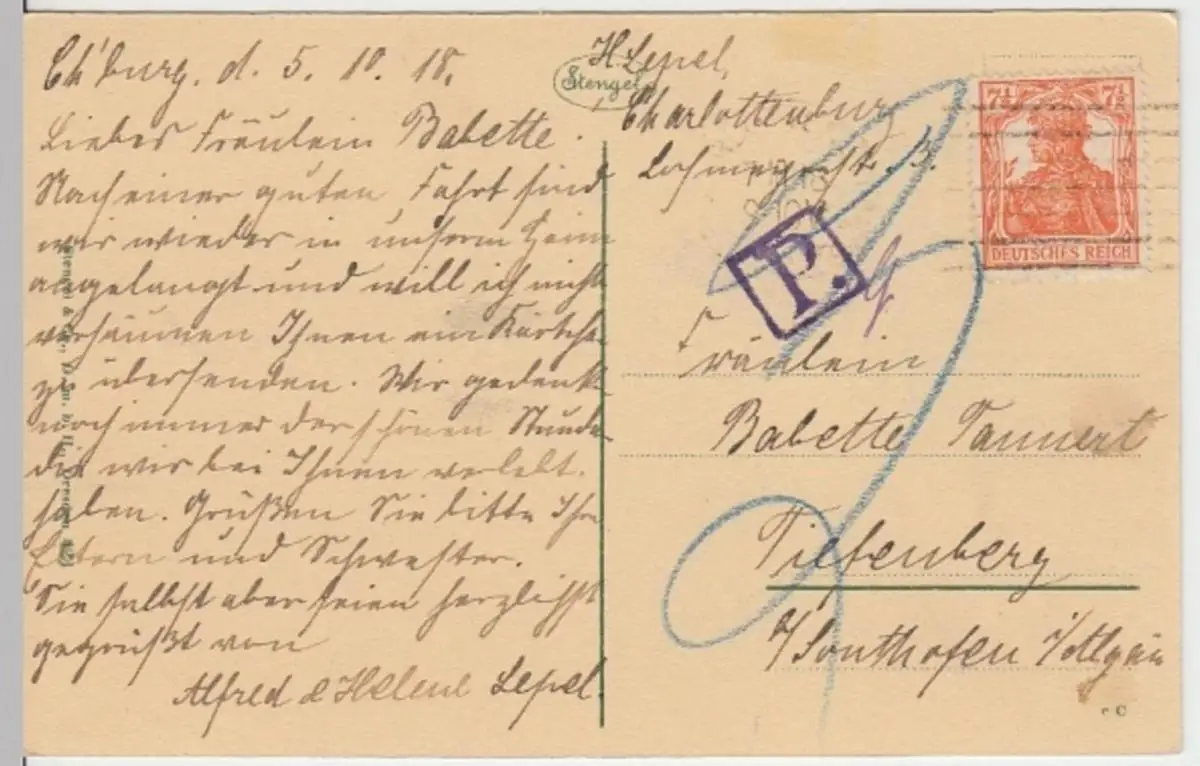 Ch'burg. d. 5. 10. 18.
Liebes Fräulein Babette.
Nach einer guten Fahrt sind
wir wieder in unserm Heim
angelangt und will ich nicht
versäumen Ihnen ein Kärtche
zu übersenden. Wir gedenk
noch immer der schönen Stunde
die wir bei Ihnen verlebt
haben. Grüßen Sie bitte Ihre
Eltern und Schwester.
Sie selbst aber seien herzlichst
gegrüßt von
Alfred & Helene Lepel.
H. Lepel,
Stengel
Charlottenburg
7½ 7½
DEUTSCHES REICH
P.
Fräulein
Babette Tannert
Tiefenberg
b/Sonthofen i/Allgäu